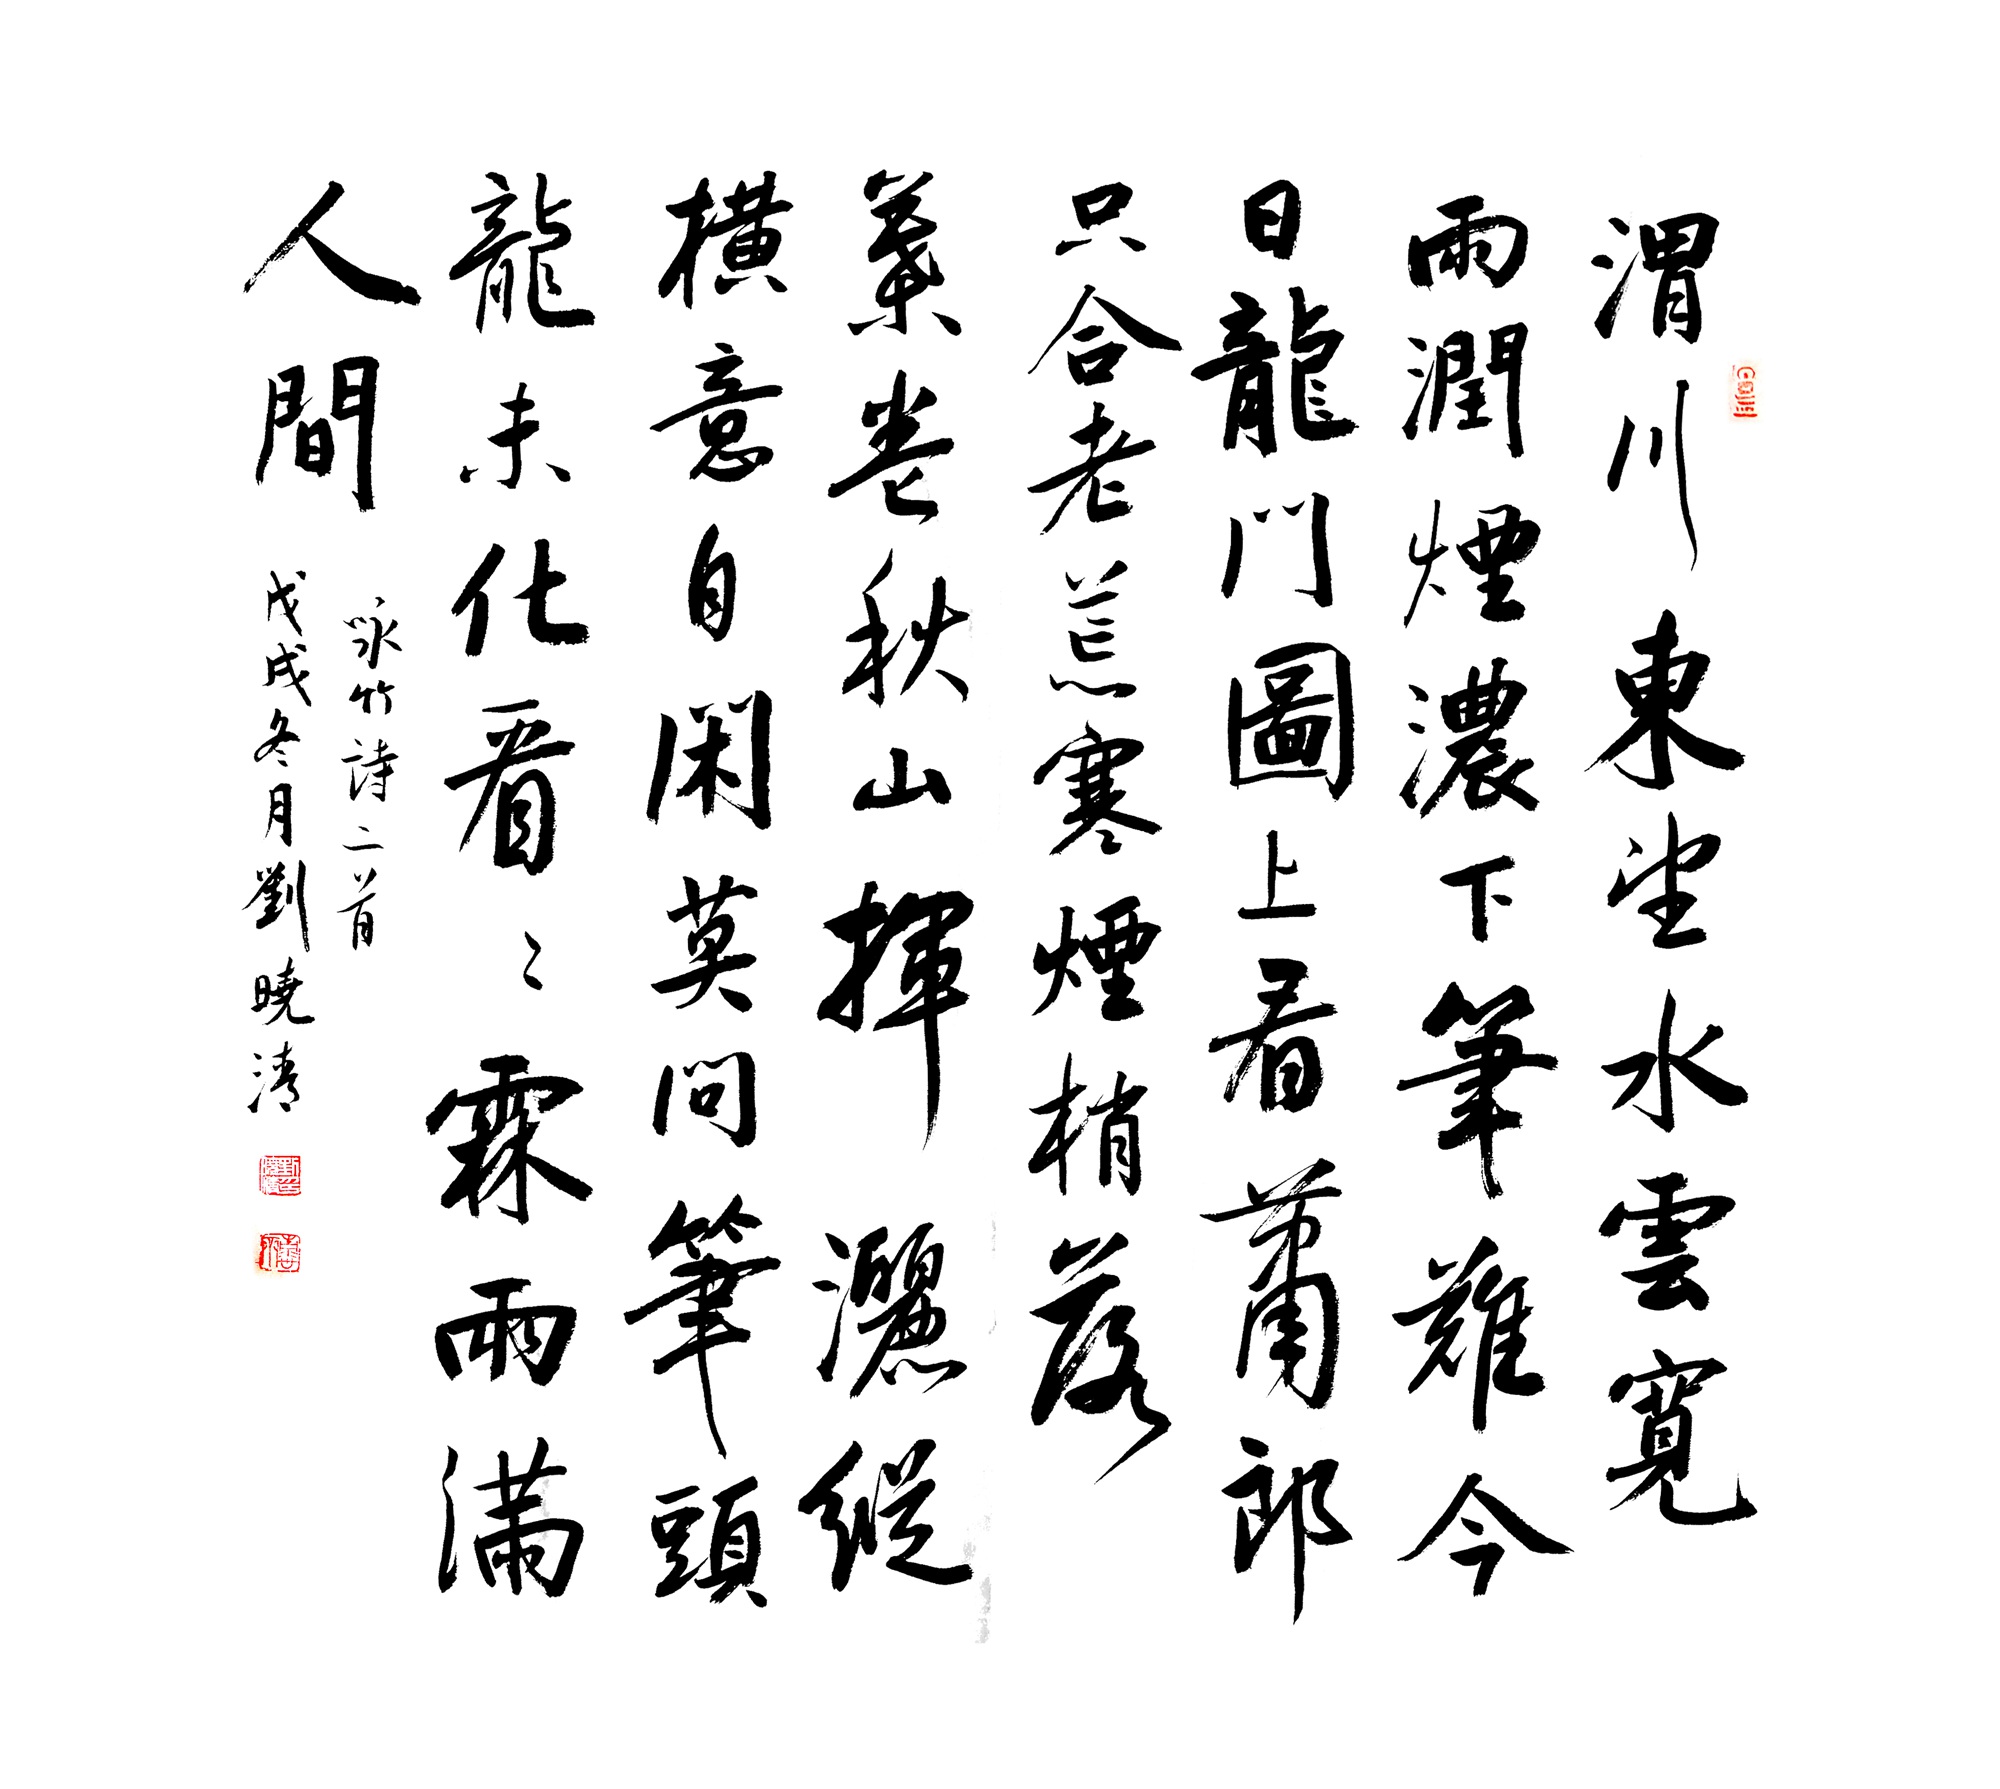 渭川東望水雲寬
雨潤煙濃下筆難今
日龍門圖上看蕭郎
只合老荒寒煙梢落
葉卷秋山揮灑縱
橫意自閑莫問筆頭
龍未化看〻霖雨滿
人間
詠竹詩二首
戊戌冬月劉曉清